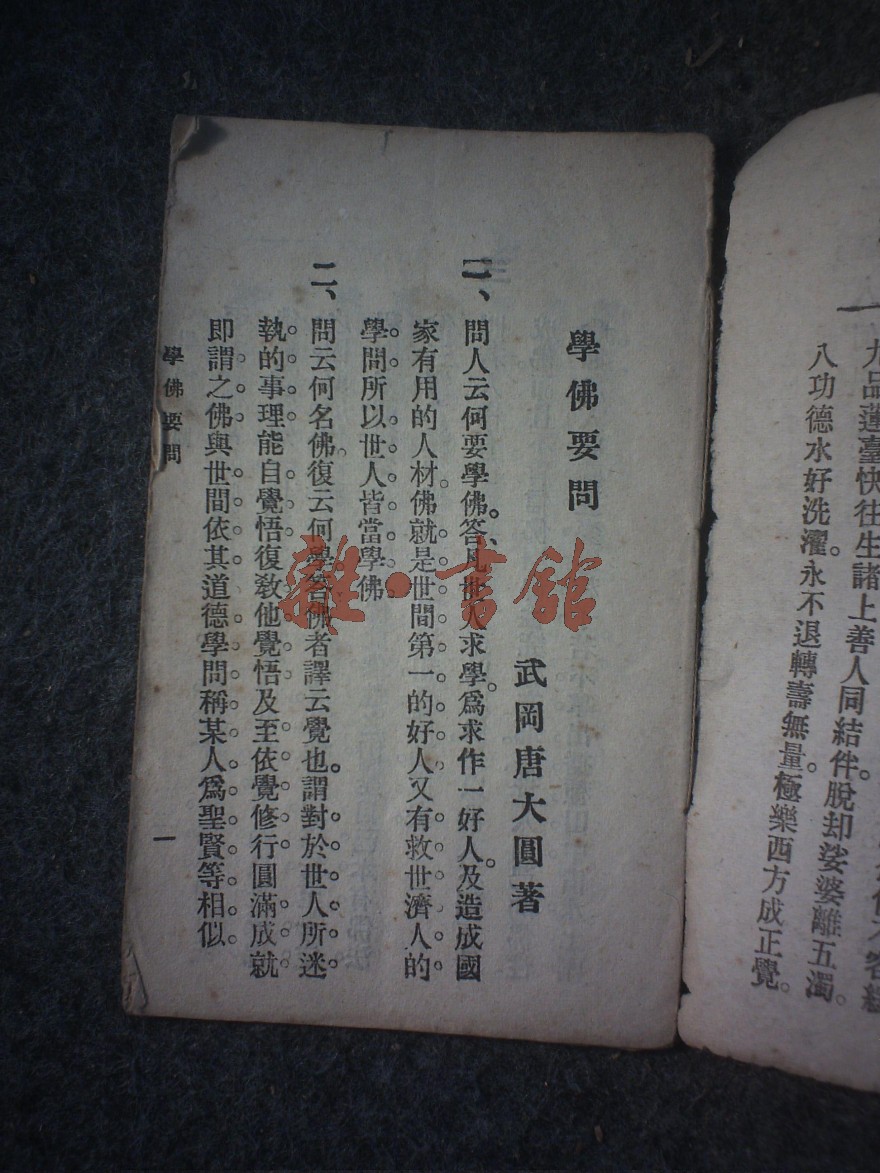 九品蓮臺快往生諸上善人同結伴脫却娑婆離五濁。
八功德水好洗濯。永不退轉壽無量。極樂西方成正覺。
學佛要問
武岡唐大圓著
一、問人云何要學佛。答、凡世人求學。爲求作一好人。及造成國
家有用的人材。佛就是世間第一的好人又有救世濟人的
學問所以世人皆當學佛
二、問云何名佛。復云何學。答佛者譯云覺也。謂對於世人所迷
執的事理能自覺悟復教他覺悟及至依覺修行圓滿成就
即謂之佛與世間依其道德學問稱某人爲聖賢等相似。
學佛要問
一
雜·書館